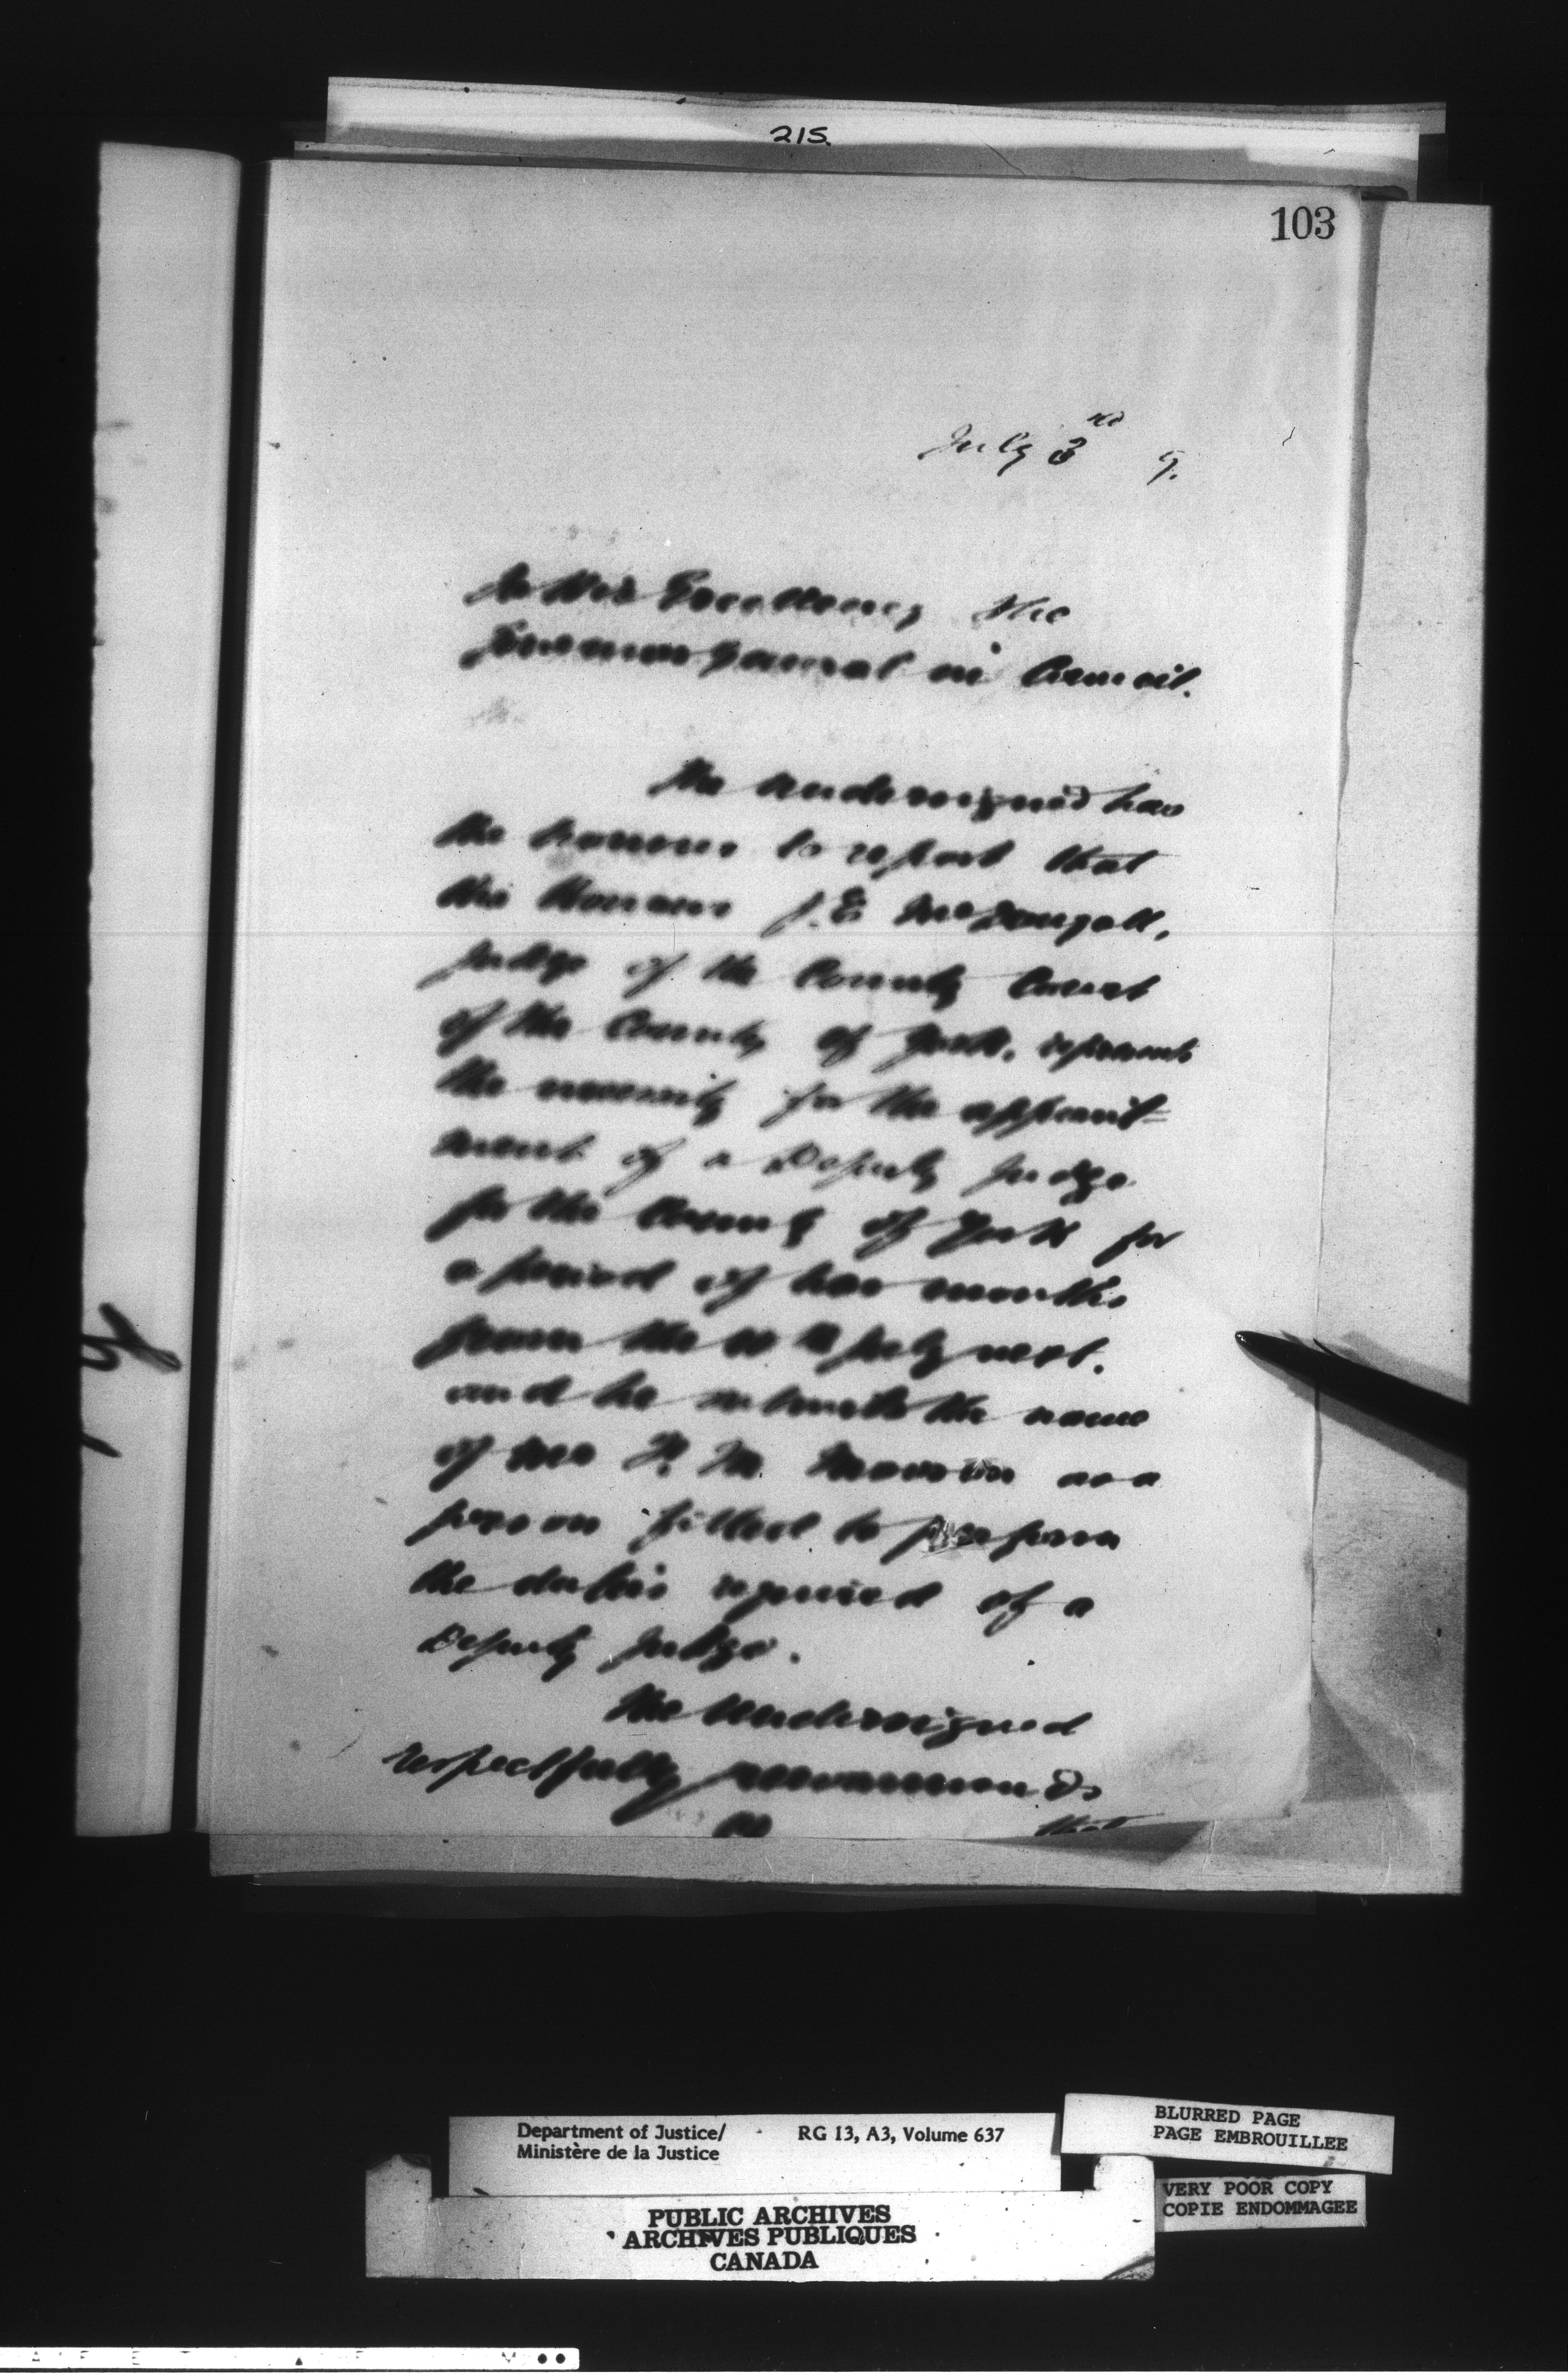 215.
103
July 3rd 9.
To His Excellency the
Governor General in Council.
The undersigned has
the honour to report that
His Honour J. E. McDougall,
Judge of the County Court
of the County of York, represents
the necessity for the appoint=
ment of a Deputy Judge
for the County of York for
a period of two months
from the July next.
and he submits the name
of Mr M. as a
person fitted to perform
the duties required of a
Deputy Judge.
The undersigned
respectfully recommends
that
Department of Justice/ RG 13, A3, Volume 637
Ministère de la Justice
PUBLIC ARCHIVES
ARCHIVES PUBLIQUES
CANADA
BLURRED PAGE
PAGE EMBROUILLEE
VERY POOR COPY
COPIE ENDOMMAGEE